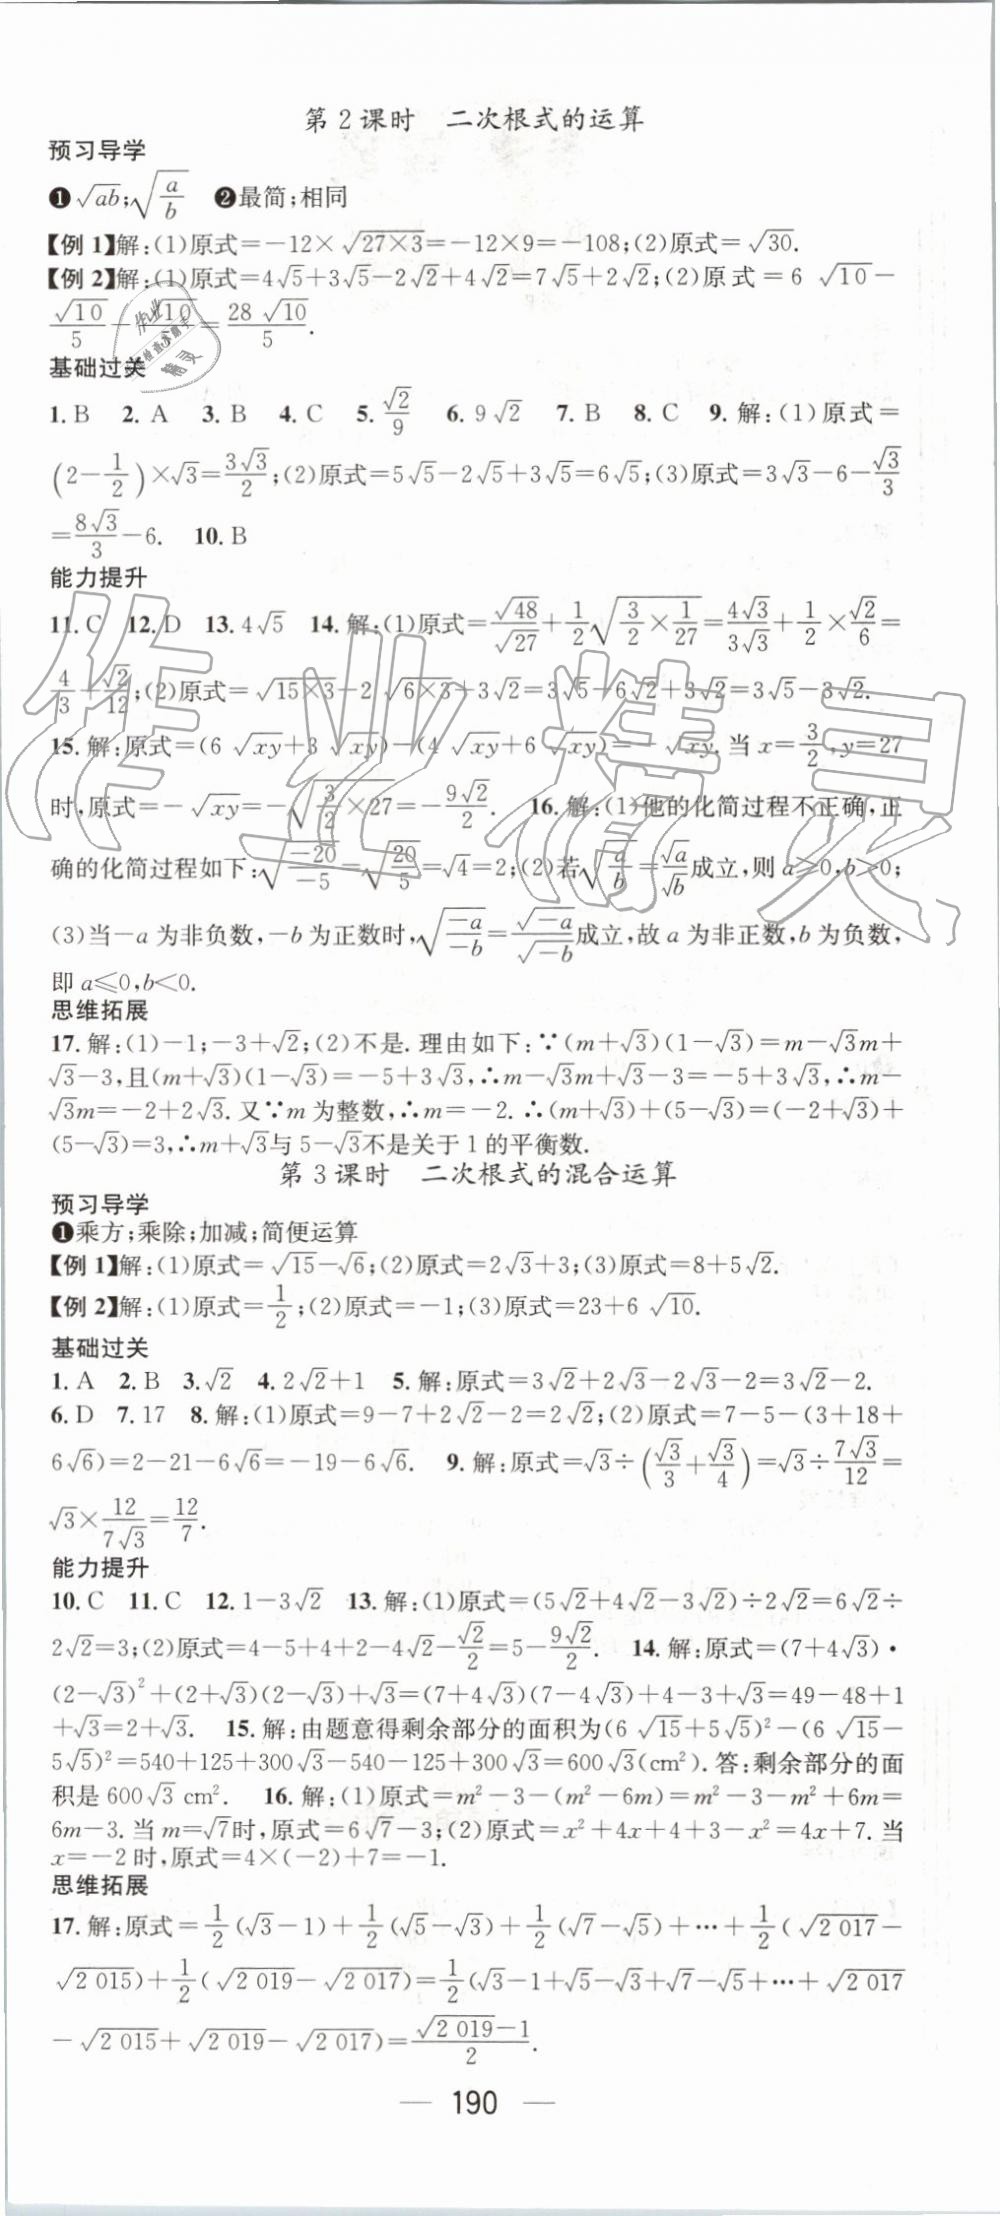 第2课时　二次根式的运算
预习导学
❶√(ab);√(a/b)　❷最简;相同
【例1】解:(1)原式=-12×√(27×3)=-12×9=-108;(2)原式=√30.
【例2】解:(1)原式=4√5+3√5-2√2+4√2=7√5+2√2;(2)原式=6√10-
√10/5-√10/5=28√10/5.
基础过关
1. B　2. A　3. B　4. C　5. √2/9　6. 9√2　7. B　8. C　9. 解:(1)原式=
(2-1/2)×√3=3√3/2;(2)原式=5√5-2√5+3√5=6√5;(3)原式=3√3-6-√3/3
=8√3/3-6.　10. B
能力提升
11. C　12. D　13. 4√5　14. 解:(1)原式=√48/√27+1/2√(3/2×1/27)=4√3/3√3+1/2×√2/6=
4/3+√2/12;(2)原式=√(15×3)-2√(6×3)+3√2=3√5-6√2+3√2=3√5-3√2.
15. 解:原式=(6√(xy)+3√(xy))-(4√(xy)+6√(xy))=-√(xy). 当x=3/2,y=27
时,原式=-√(xy)=-√(3/2×27)=-9√2/2.　16. 解:(1)他的化简过程不正确,正
确的化简过程如下:√(-20/-5)=√(20/5)=√4=2;(2)若√(a/b)=√a/√b成立,则a≥0,b>0;
(3)当-a为非负数,-b为正数时,√(-a/-b)=√(-a)/√(-b)成立,故a为非正数,b为负数,
即a≤0,b<0.
思维拓展
17. 解:(1)-1;-3+√2;(2)不是. 理由如下:∵(m+√3)(1-√3)=m-√3m+
√3-3,且(m+√3)(1-√3)=-5+3√3,∴m-√3m+√3-3=-5+3√3,∴m-
√3m=-2+2√3. 又∵m为整数,∴m=-2. ∴(m+√3)+(5-√3)=(-2+√3)+
(5-√3)=3,∴m+√3与5-√3不是关于1的平衡数.
第3课时　二次根式的混合运算
预习导学
❶乘方;乘除;加减;简便运算
【例1】解:(1)原式=√15-√6;(2)原式=2√3+3;(3)原式=8+5√2.
【例2】解:(1)原式=1/2;(2)原式=-1;(3)原式=23+6√10.
基础过关
1. A　2. B　3. √2　4. 2√2+1　5. 解:原式=3√2+2√3-2√3-2=3√2-2.
6. D　7. 17　8. 解:(1)原式=9-7+2√2-2=2√2;(2)原式=7-5-(3+18+
6√6)=2-21-6√6=-19-6√6.　9. 解:原式=√3÷(√3/3+√3/4)=√3÷7√3/12=
√3×12/7√3=12/7.
能力提升
10. C　11. C　12. 1-3√2　13. 解:(1)原式=(5√2+4√2-3√2)÷2√2=6√2÷
2√2=3;(2)原式=4-5+4+2-4√2-√2/2=5-9√2/2.　14. 解:原式=(7+4√3)·
(2-√3)²+(2+√3)(2-√3)+√3=(7+4√3)(7-4√3)+4-3+√3=49-48+1
+√3=2+√3.　15. 解:由题意得剩余部分的面积为(6√15+5√5)²-(6√15-
5√5)²=540+125+300√3-540-125+300√3=600√3(cm²). 答:剩余部分的面
积是600√3 cm².　16. 解:(1)原式=m²-3-(m²-6m)=m²-3-m²+6m=
6m-3. 当m=√7时,原式=6√7-3;(2)原式=x²+4x+4+3-x²=4x+7. 当
x=-2时,原式=4×(-2)+7=-1.
思维拓展
17. 解:原式=1/2(√3-1)+1/2(√5-√3)+1/2(√7-√5)+…+1/2(√2 017-
√2 015)+1/2(√2 019-√2 017)=1/2(√3-1+√5-√3+√7-√5+…+√2 017
-√2 015+√2 019-√2 017)=(√2 019-1)/2.
— 190 —
作业精灵